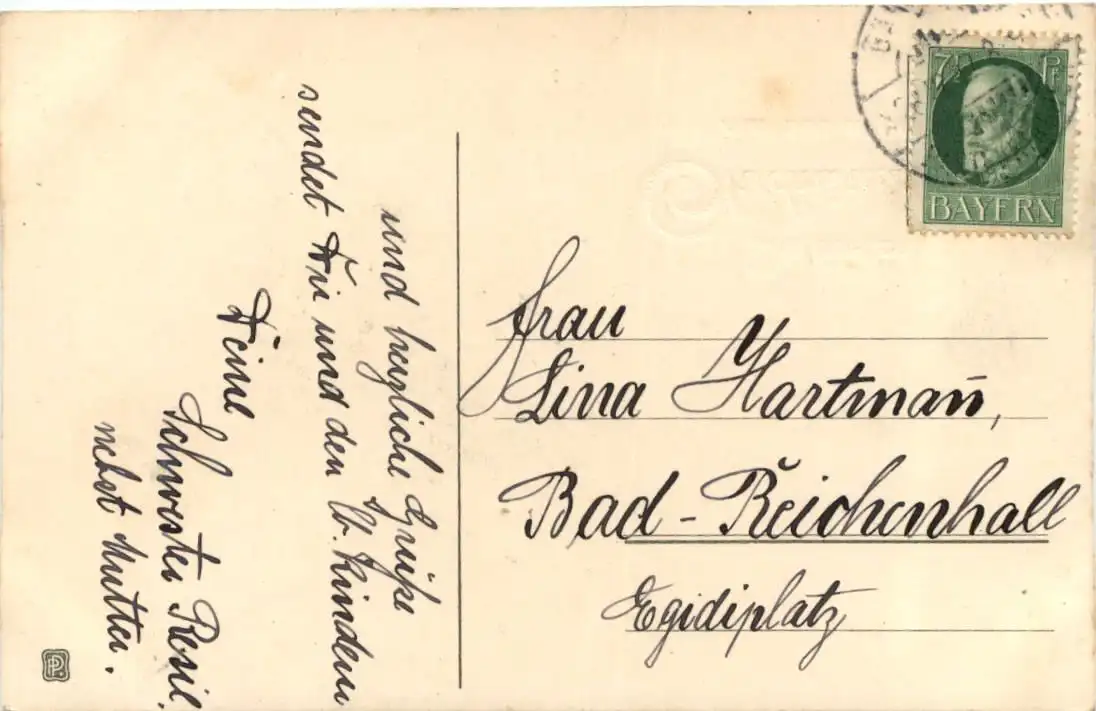 und herzliche Grüße
sendet Dir und den lb. Kindern
Deine
Schwester Resil
nebst Mutter.
7½ Pf
BAYERN
Frau
Lina Hartmañ,
Bad-Reichenhall
Egidiplatz